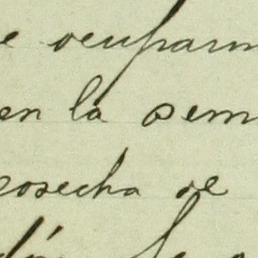 e ocuparm
en la sem
cosecha de